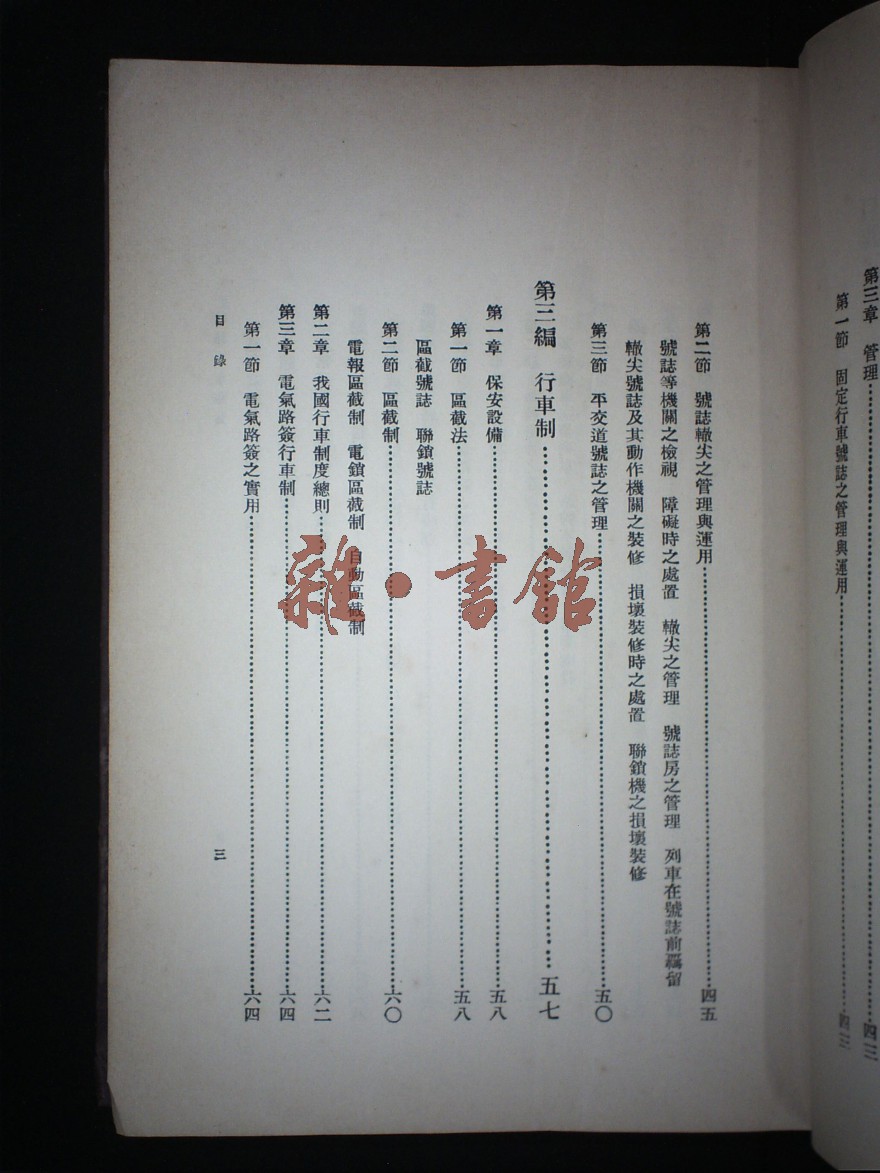 第三章　管理……四三
第一節　固定行車號誌之管理與運用……四三
第二節　號誌轍尖之管理與運用……四五
號誌等機關之檢視　障礙時之處置　轍尖之管理　號誌房之管理　列車在號誌前羈留
轍尖號誌及其動作機關之裝修　損壞裝修時之處置　聯鎖機之損壞裝修
第三節　平交道號誌之管理……五〇
第三編　行車制……五七
第一章　保安設備……五八
第一節　區截法……五八
區截號誌　聯鎖號誌
第二節　區截制……六〇
電報區截制　電鎖區截制　自動區截制
第二章　我國行車制度總則……六二
第三章　電氣路簽行車制……六四
第一節　電氣路簽之實用……六四
目錄　三
雜·書館